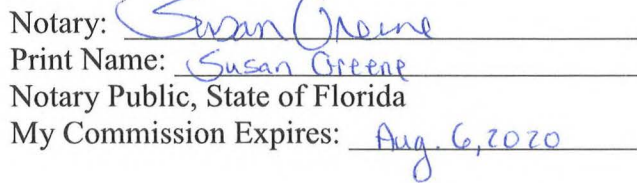 Notary: Susan Greene
Print Name: Susan Greene
Notary Public, State of Florida
My Commission Expires: Aug. 6, 2020